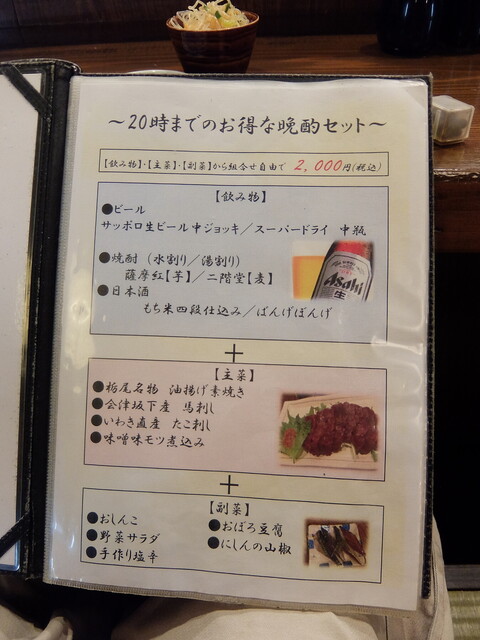 ～20時までのお得な晩酌セット～
【飲み物】・【主菜】・【副菜】から組合せ自由で 2,000円(税込)
【飲み物】
●ビール
サッポロ生ビール中ジョッキ／スーパードライ 中瓶
●焼酎 (水割り／湯割り)
薩摩紅【芋】／二階堂【麦】
●日本酒
もち米四段仕込み／ばんげぼんげ
Asahi
生
＋
【主菜】
●栃尾名物 油揚げ素焼き
●会津坂下産 馬刺し
●いわき直産 たこ刺し
●味噌味モツ煮込み
＋
【副菜】
●おしんこ
●野菜サラダ
●手作り塩辛
●おぼろ豆腐
●にしんの山椒